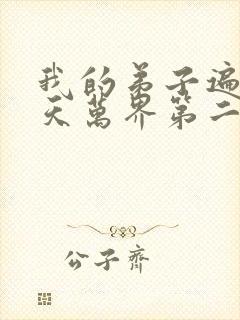 我的弟子遍
天萬界第二
公子齊